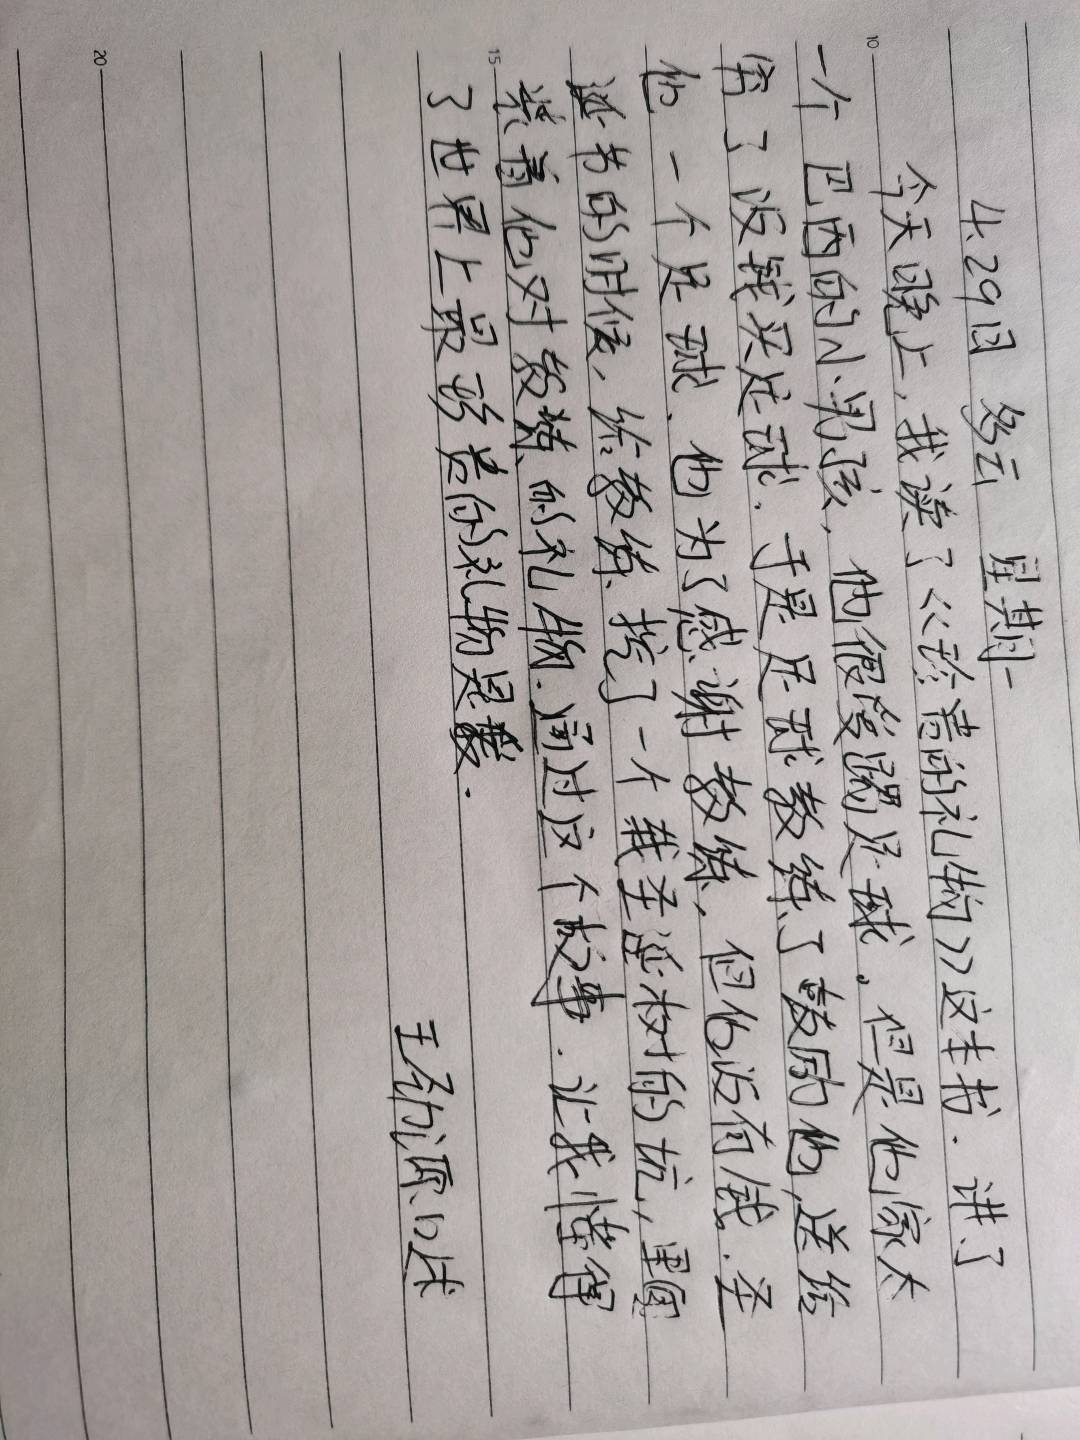 4.29日 多云 星期一
今天晚上,我读了《珍贵的礼物》这本书.讲了
一个巴西的小男孩,他很爱踢足球。但是他家太
穷了没钱买足球.于是足球教练了鼓励他,送给
他一个足球、也为了感谢教练,但他没有钱.圣
诞书的时候,给教练挖了一个栽圣诞树的坑,里面
装着他对教练的礼物.通过这个故事.让我懂得
了世界上最珍贵的礼物是爱.
王孙源口述
10
15
20